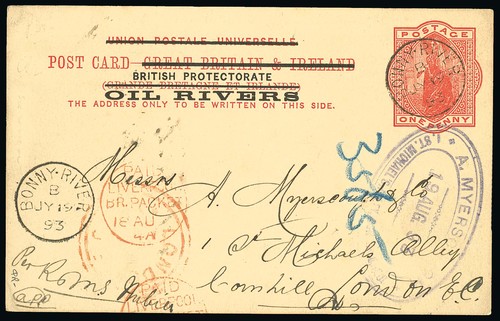 UNION POSTALE UNIVERSELLE
POST CARD GREAT BRITAIN & IRELAND
BRITISH PROTECTORATE
(GRANDE BRETAGNE ET IRLANDE)
OIL RIVERS
THE ADDRESS ONLY TO BE WRITTEN ON THIS SIDE.
ONE PENNY
BONNY·RIVER
BONNY·RIVER
B
JY 19
93
PAID
LIVERPOOL
BR. PACKET
18 AU
PAID
LIVERPOOL
A. MYERS
1, ST. MICHAEL
19 AUG
Messrs A. Myerscough & Co
1 St Michaels Alley
Cornhill London E.C.
Per R.M.S.